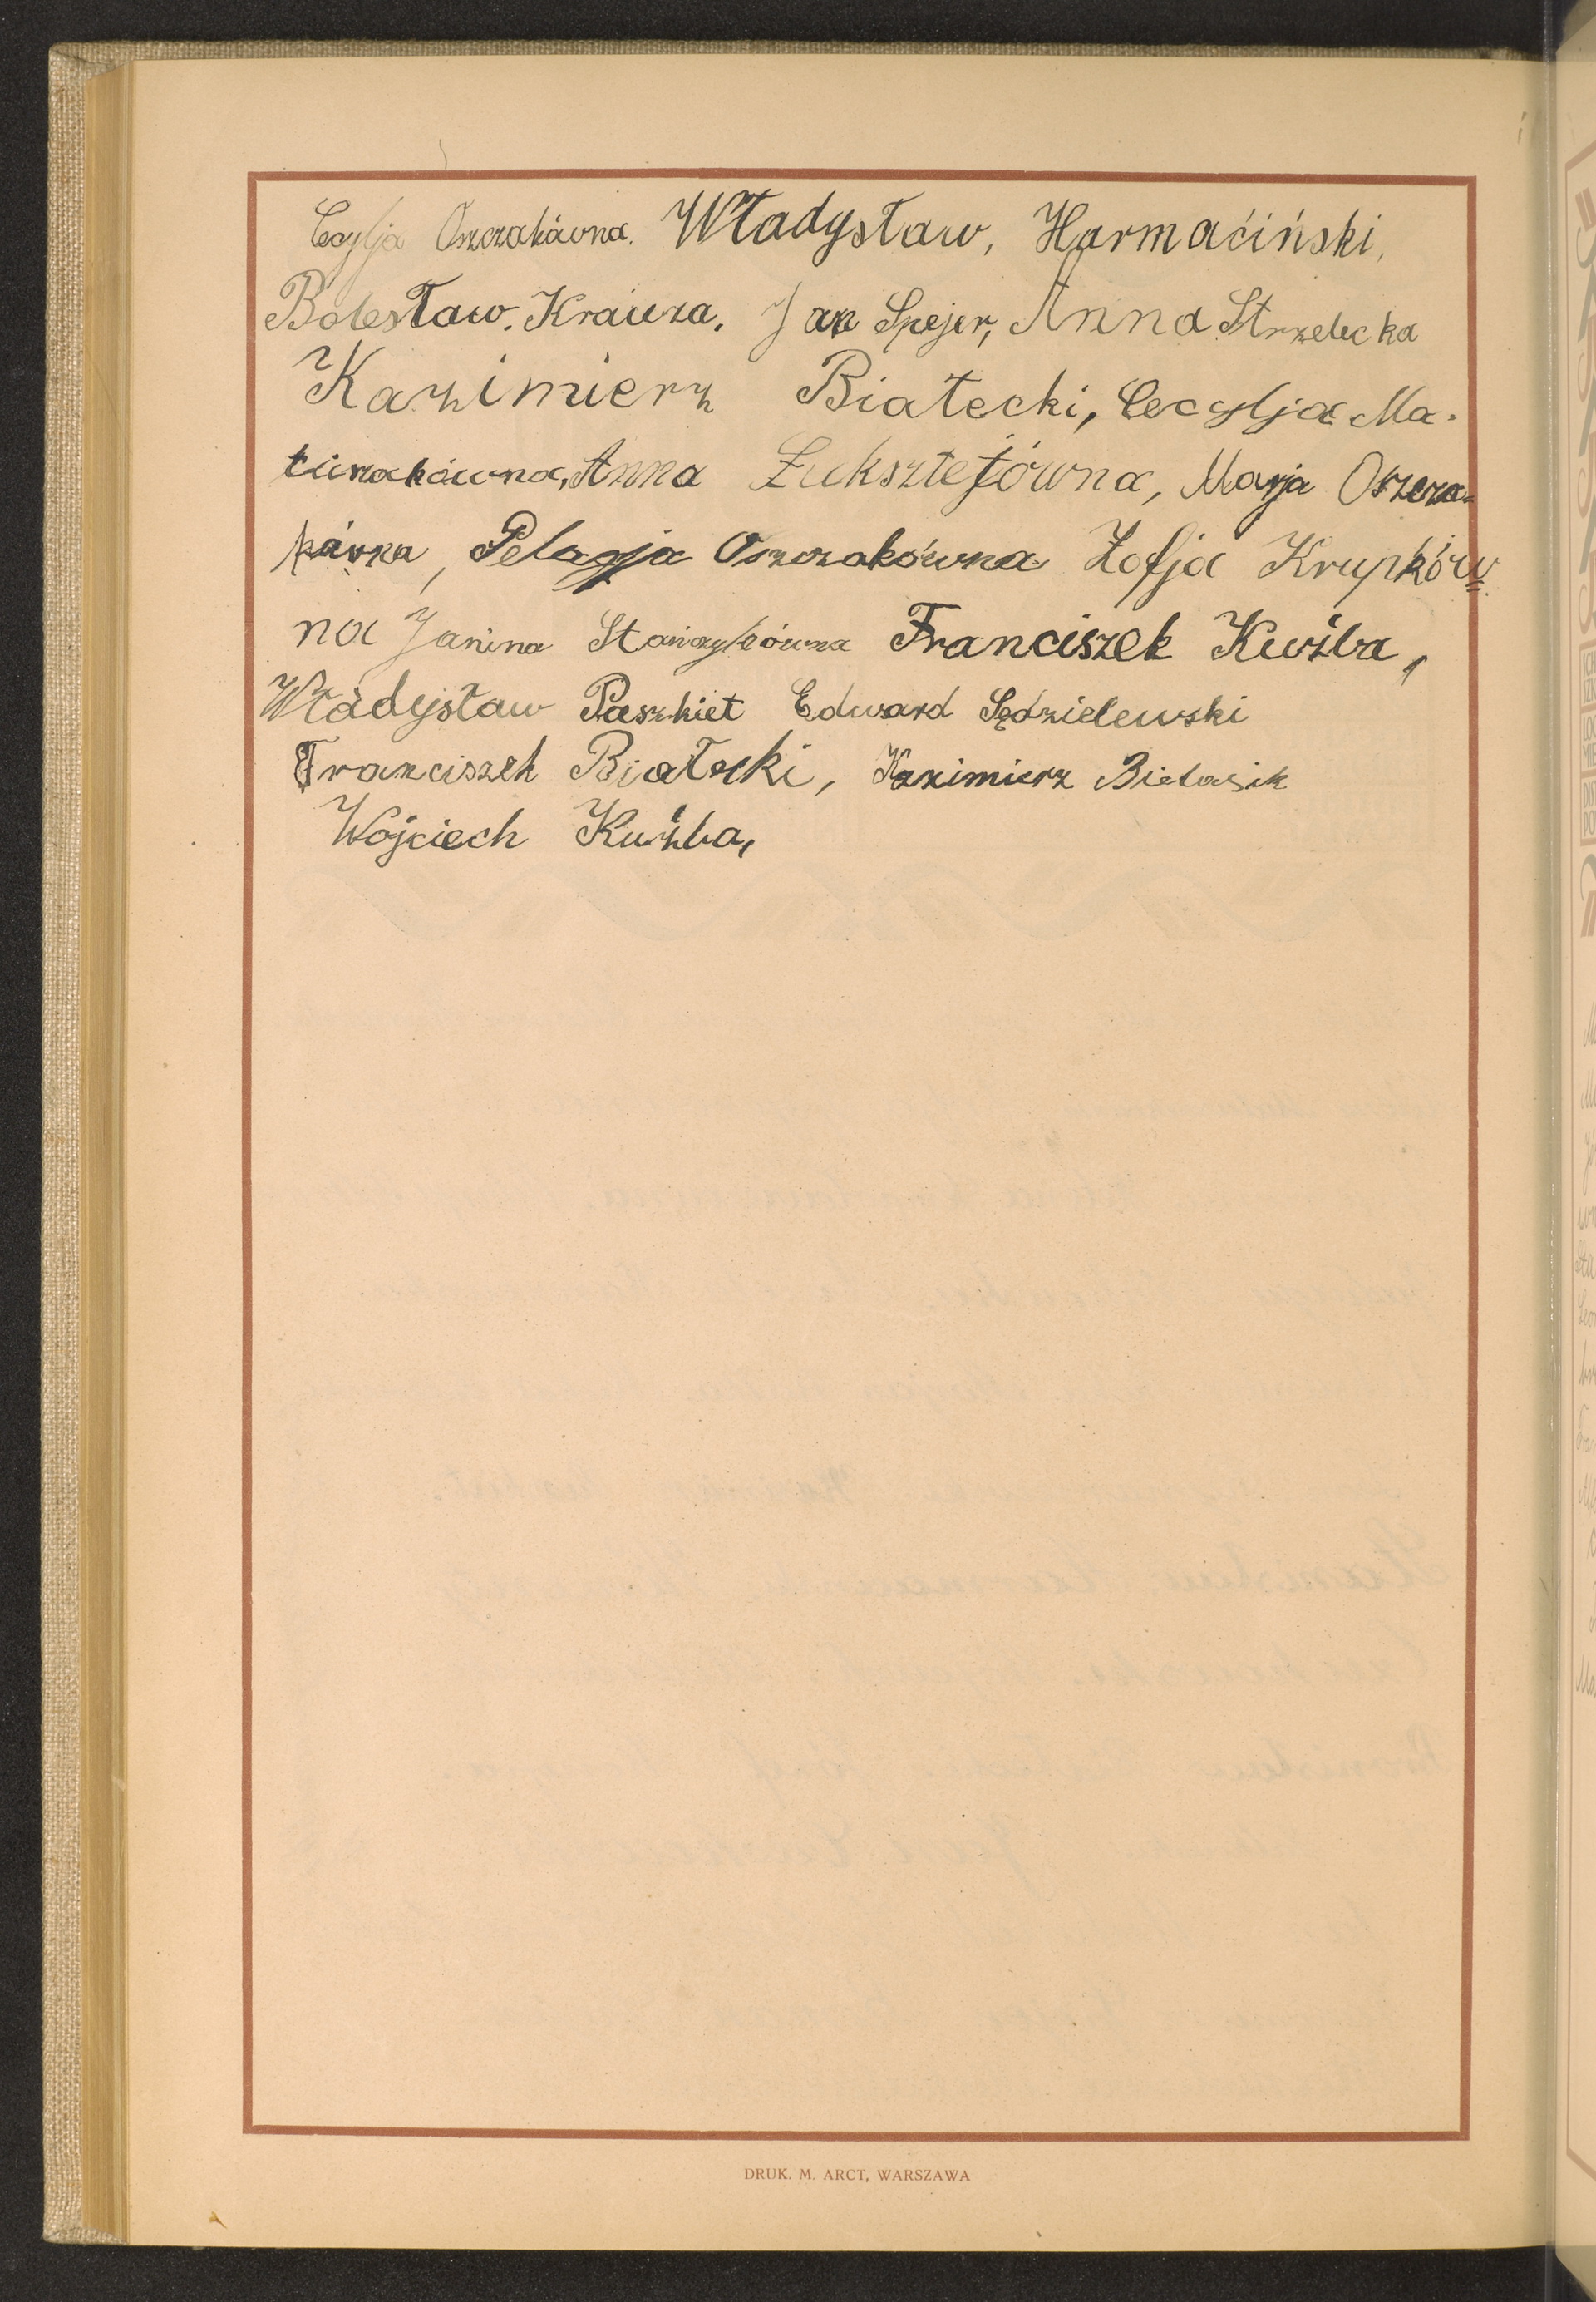 Cecylja Oszczakówna. Władysław, Harmaciński,
Bolesław. Krauza. Jan Spejer, Anna Strzelecka
Kazimierz Białecki, Cecylja Ma-
tuszakówna, Anna Luksztejówna, Marja Oszcza-
kówna, Pelagja Oszczakówna Zofja Krupków=
na Janina Stańczykówna Franciszek Kuźba,
Władysław Paszkiet Edward Sędzielewski
Franciszek Białecki, Kazimierz Bielasik
Wojciech Kuźba,
DRUK. M. ARCT, WARSZAWA